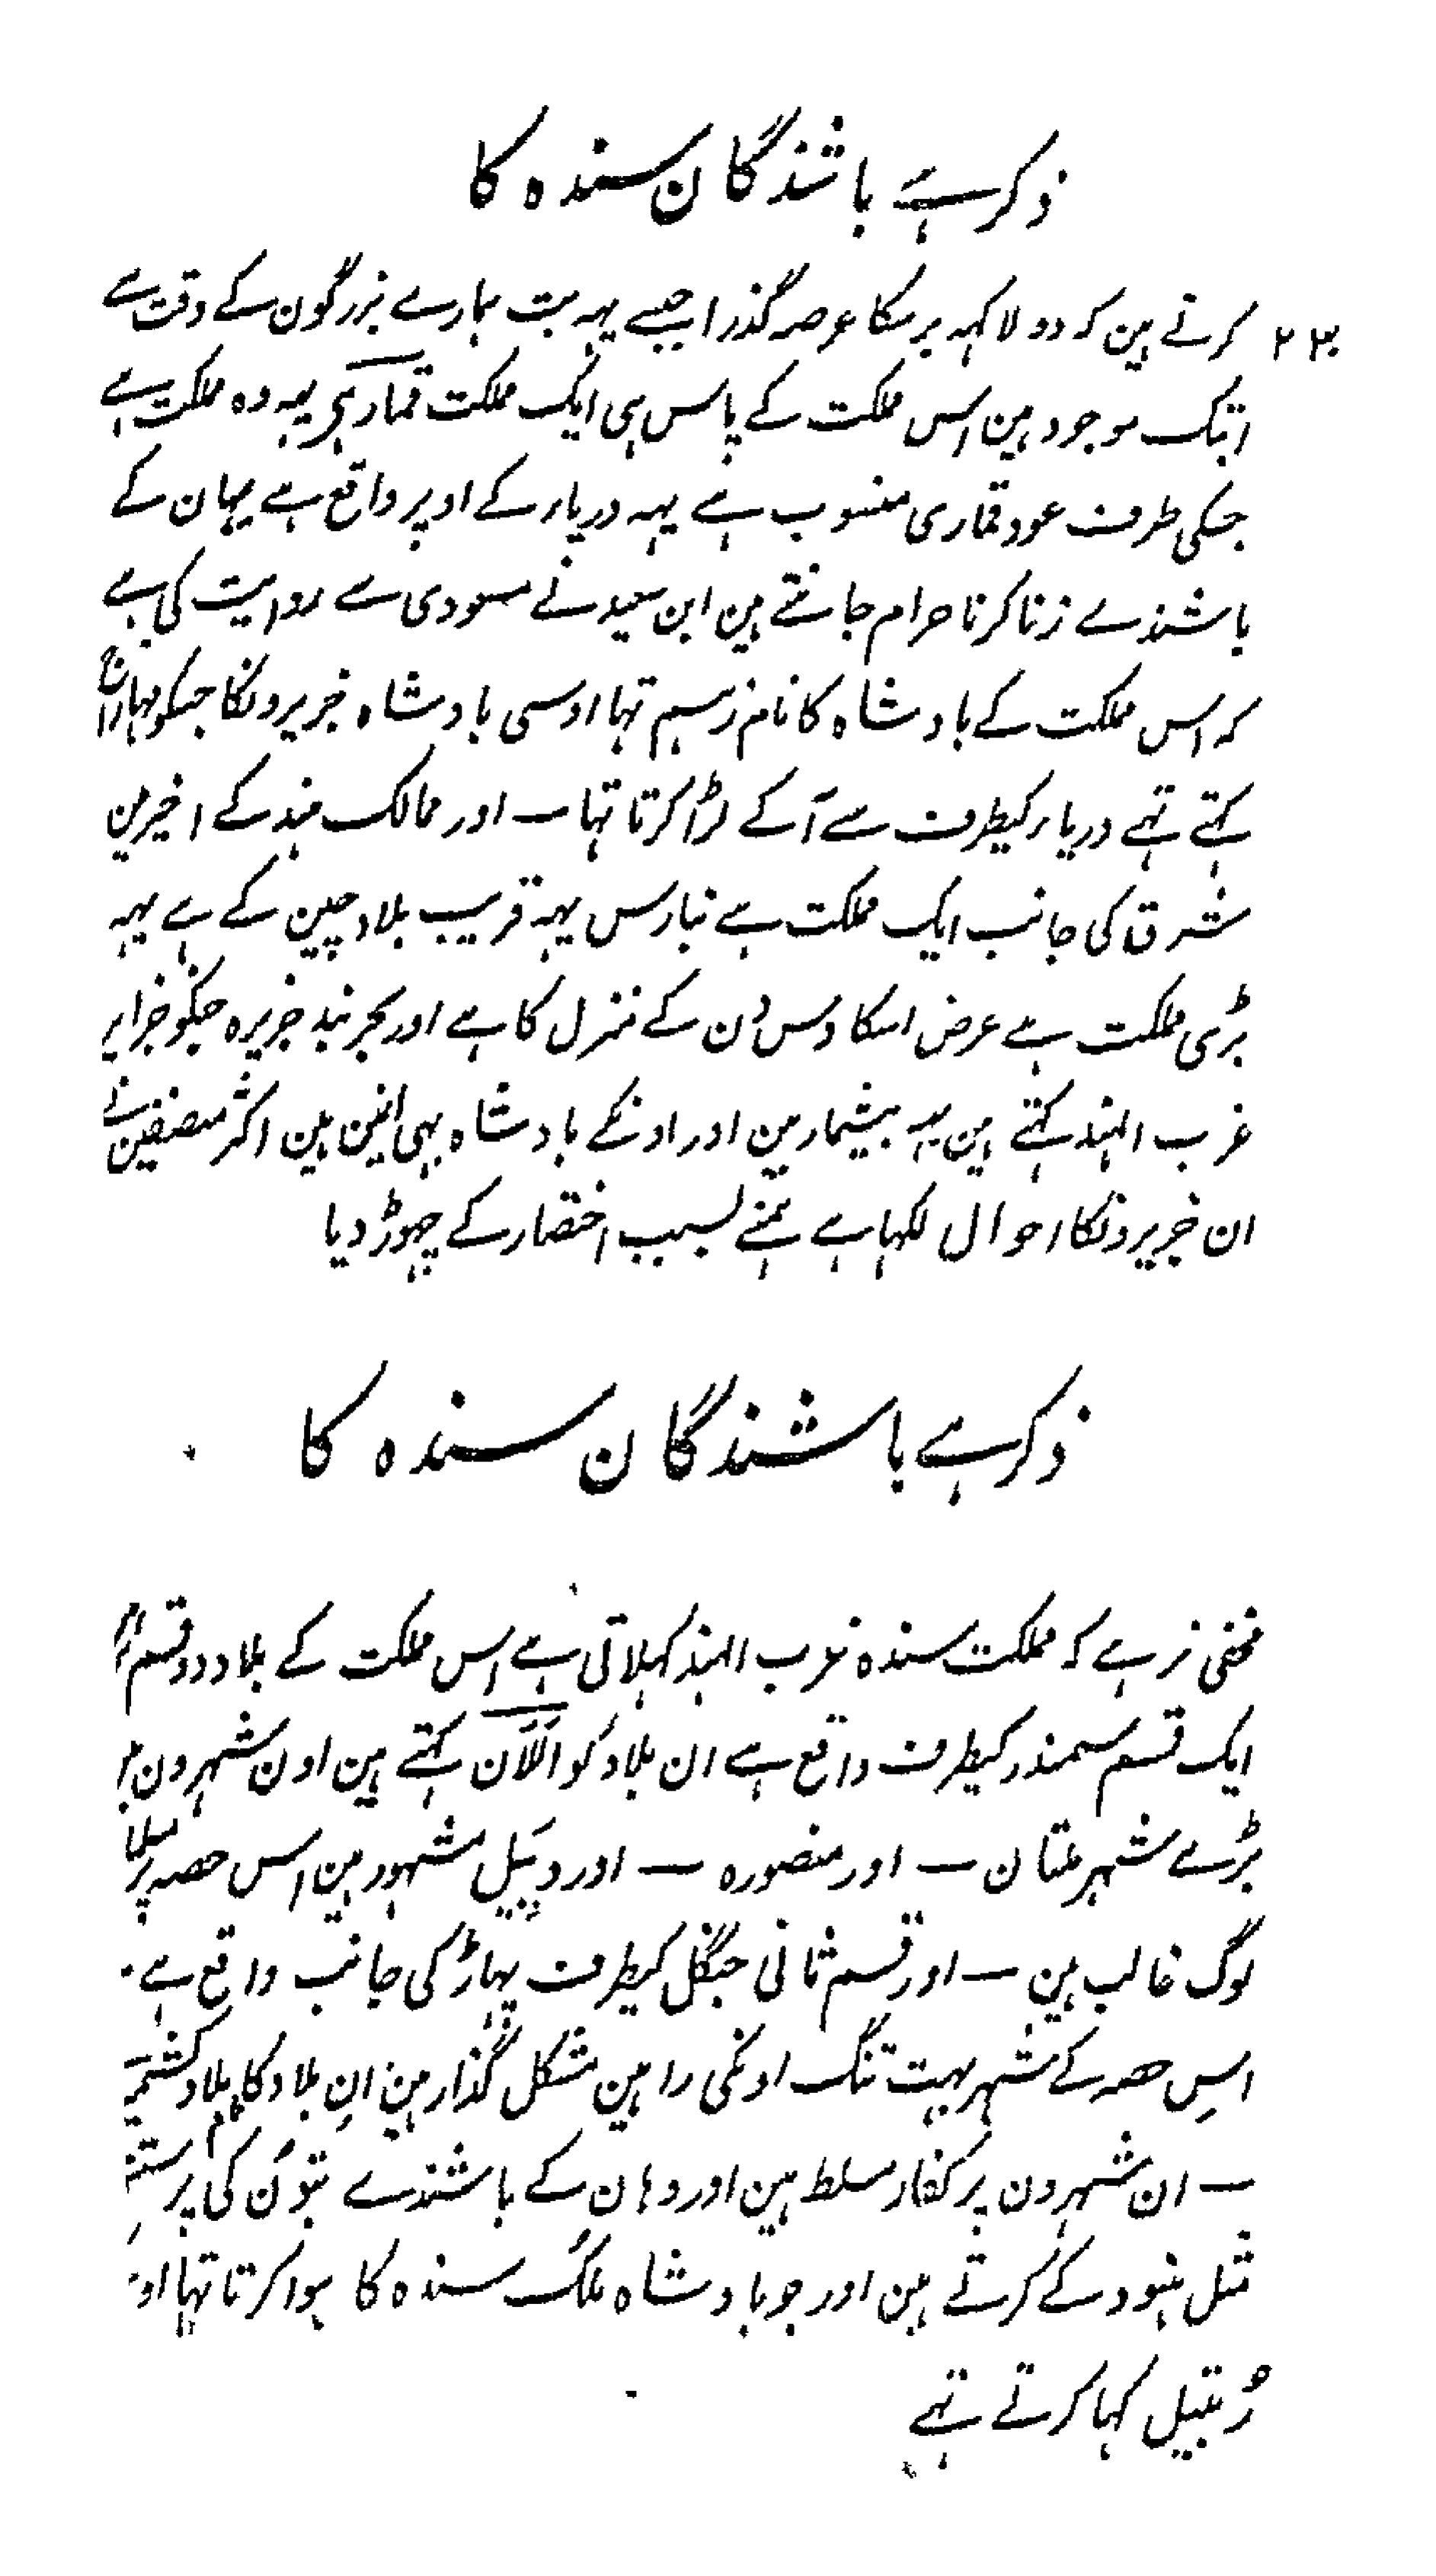 ذکر ہے باشندگان سندہ کا
کرتے ہین کہ دو لاکہہ برسکا عرصہ گذرا جیسے یہہ بت ہمارے بزرگون کے وقت سے
ابتک موجود ہین اس مملکت کے پاس ہی ایک مملکت قمار ہی یہہ وہ مملکت ہے
جسکی طرف عود قماری منسوب ہے یہہ دریاء کے اوپر واقع ہے یہان کے
باشندے زنا کرنا حرام جانتے ہین ابن سعید نے مسعودی سے روایت کی ہے
کہ اس مملکت کے بادشاہ کا نام زہیم تہا اوسی بادشاہ جزیرونکا جسکو مہاراج
کہتے تہے دریاء کیطرف سے آکے لڑا کرتا تہا ۔ اور ممالک ہند کے اخیر مین
شرق کی جانب ایک مملکت ہے بنارس یہہ قریب بلاد چین کے ہے یہہ
بڑی مملکت ہے عرض اسکا دس دن کے منزل کا ہے اور بحر ہند جزیرہ جنکو جزایر
غرب الہند کہتے ہین یہہ بیشمار ہین اور اونکے بادشاہ بہی انہین ہین اکثر مصنفین نے
ان جزیرونکا احوال لکہا ہے ہمنے بسبب اختصار کے چہوڑ دیا
ذکر ہے باشندگان سندہ کا
مخفی نرہے کہ مملکت سندہ غرب الہند کہلاتی ہے اس مملکت کے بلاد دو قسم
ایک قسم سمندر کیطرف واقع ہے ان بلاد کو اللان کہتے ہین اون شہرون
بڑے شہر ملتان ۔ اور منصورہ ۔ اور دیبل مشہور ہین اس حصہ پر
لوگ غالب ہین ۔ اور قسم ثانی جنگل کیطرف پہاڑ کی جانب واقع ہے
اس حصہ کے شہر بہت تنگ اونکی راہین مشکل گذار ہین ان بلاد کا بلاد کشمیر
۔ ان شہرون پر کفار مسلط ہین اور وہان کے باشندے بتون کی پرستش
مثل ہنود کے کرتے ہین اور جو بادشاہ ملک سندہ کا ہوا کرتا تہا
رتبیل کہا کرتے تہے